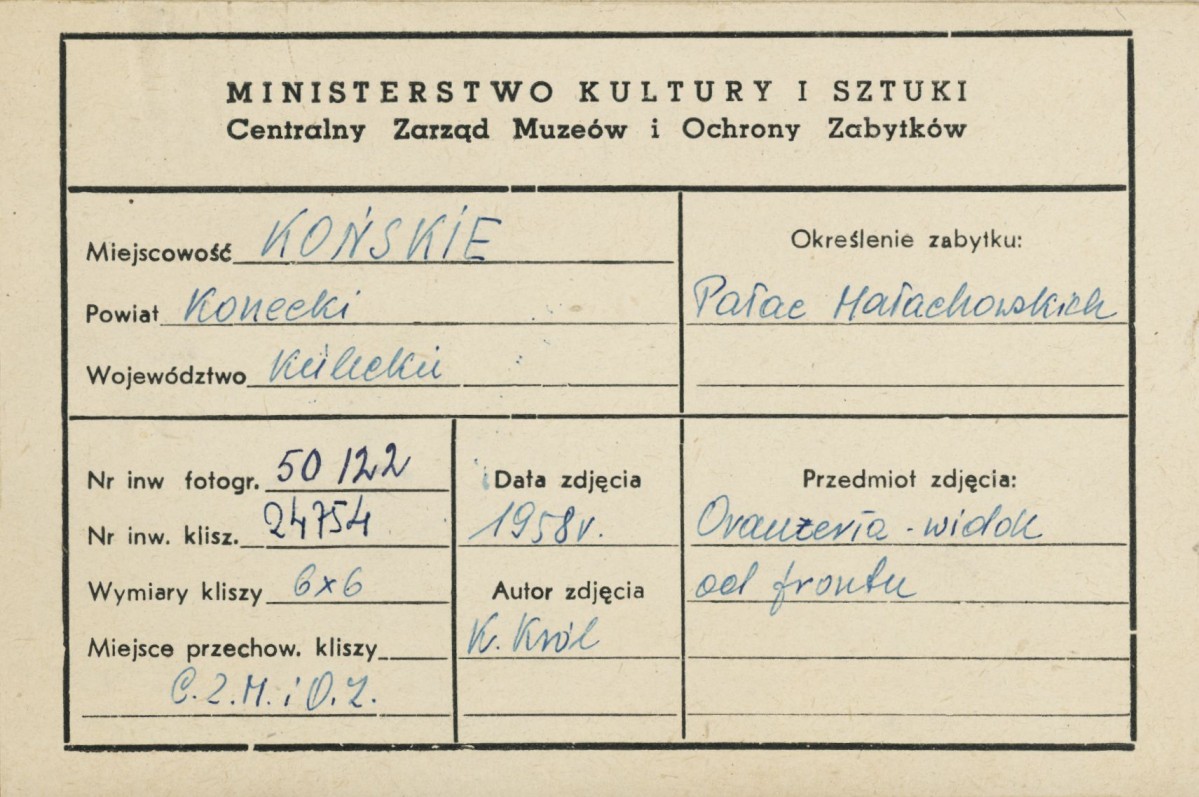 MINISTERSTWO KULTURY I SZTUKI
Centralny Zarząd Muzeów i Ochrony Zabytków
Miejscowość KOŃSKIE
Powiat Konecki
Województwo Kieleckie
Określenie zabytku:
Pałac Małachowskich
Nr inw fotogr. 50122
Nr inw. klisz. 24754
Wymiary kliszy 6x6
Miejsce przechow. kliszy
C.Z.M. i O.Z.
Data zdjęcia
1958r.
Autor zdjęcia
K. Król
Przedmiot zdjęcia:
Oranżeria - widok
od frontu